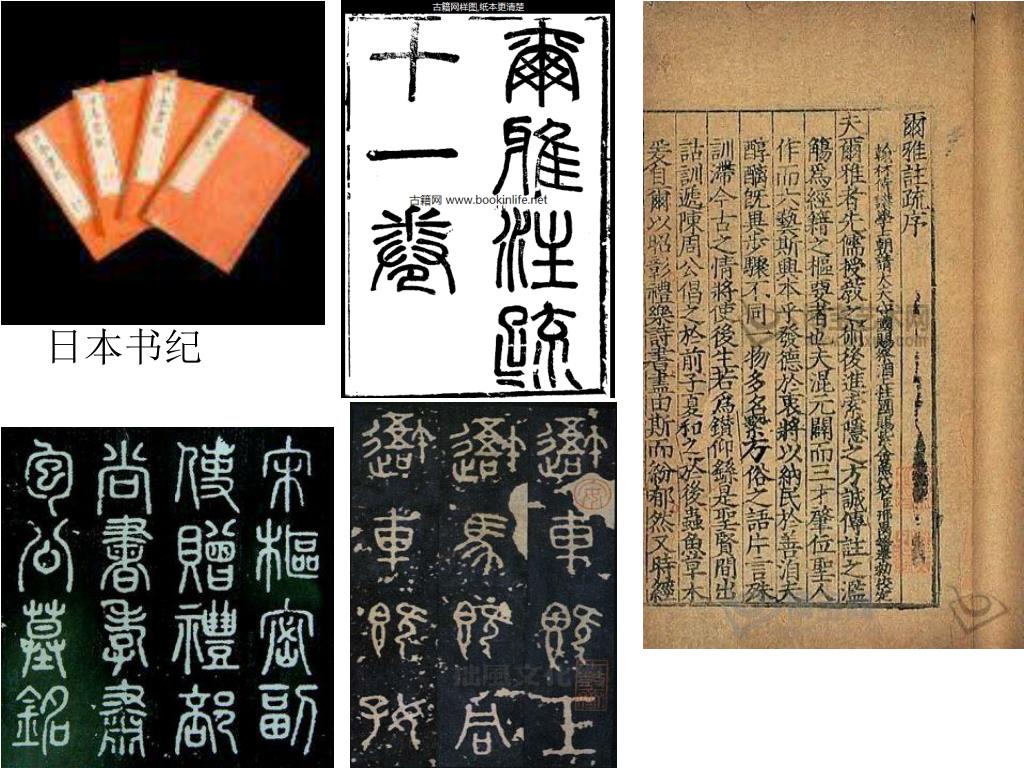 古籍网样图,纸本更清楚
爾雅注疏
十一卷
古籍网 www.bookinlife.net
日本书纪
爾雅註疏序
翰林侍講學士朝請大夫守國子祭酒上柱國賜紫金魚袋
夫爾雅者先儒授教之術後進索隱之方誠傳註之濫
觴爲經籍之樞要者也夫混元闢而三才肇位聖人
作而六藝斯興本乎發德於衷將以納民於善洎夫
醇醨旣異步驟不同一物多名繫方俗之語片言殊
訓滯今古之情將使後生若爲鑽仰繇是聖賢間出
詁訓遞陳周公倡之於前子夏和之於後蟲魚草木
爰自爾以昭彰禮樂詩書盡由斯而紛郁然又時經
宋樞密副
使贈禮部
尚書孝肅
包公墓銘
車既工
馬既同
車既好